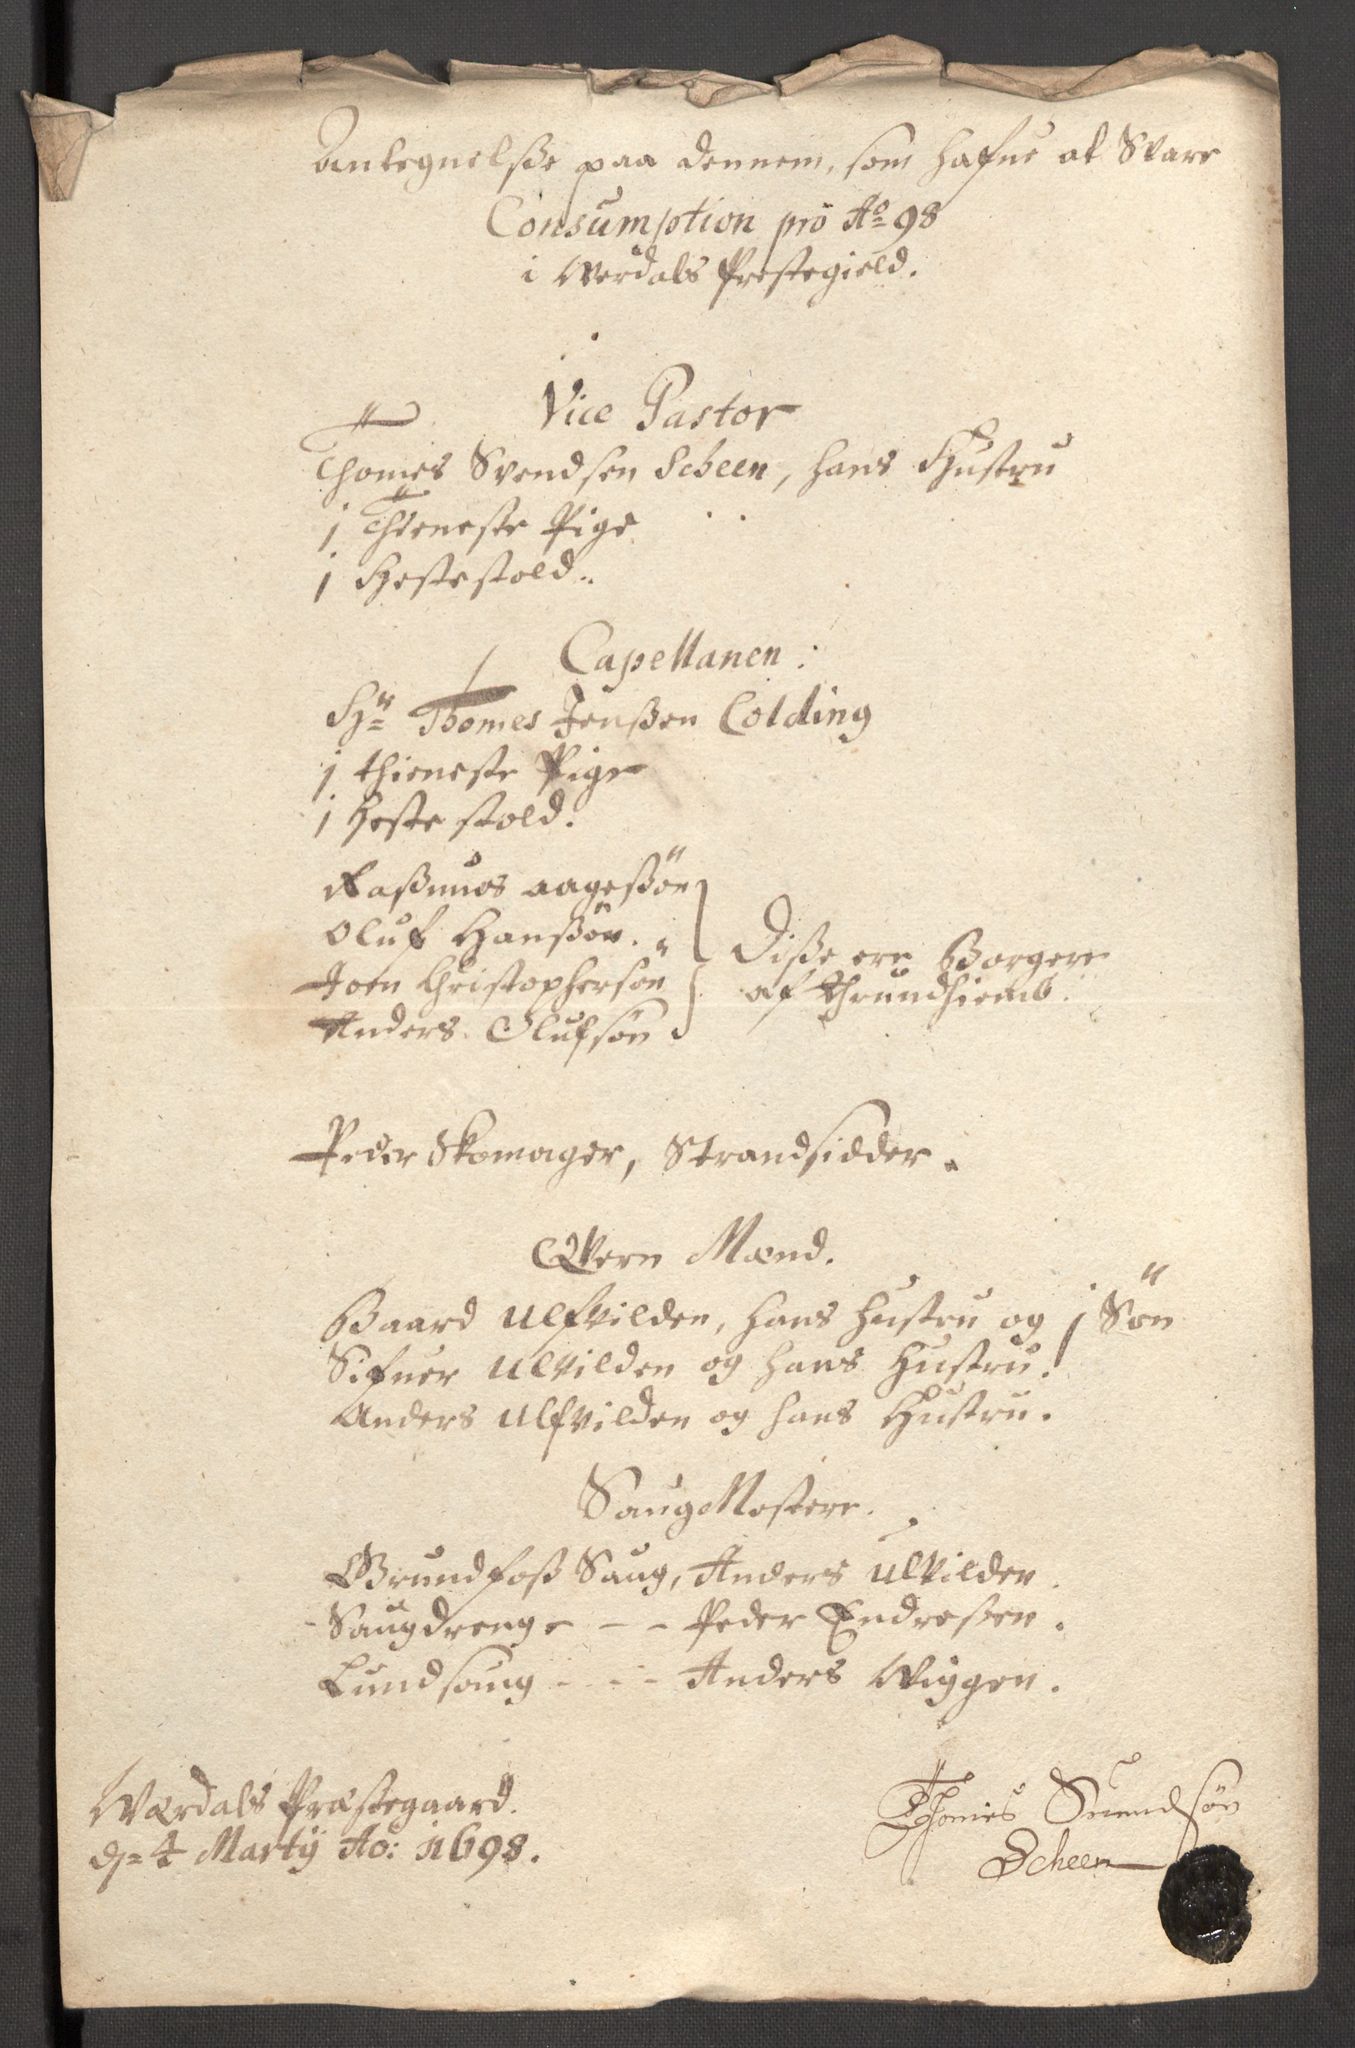 Antegnelsße paa dennem, som hafue at Svare
Consumption pro Ao 98
i Werdals Prestegield.
Vice Pastor
Thomes Svendsen Scheen, hans Hustru
1 Thieneste Pige
1 Hestestold..
Capellanen:
Hr Thomes Jenßen Colding
1 thieneste Pige
1 Heste stold.
Raßmus aageßøn
Oluf Hanßøn.
Joen Christophersøn
Anders Olufsøn
Diße ere Borgere
af Thrundhiemb.
Peder Skomager, Strandsidder.
Qvern Mænd.
Baard Ulfvilden, hans hustru og 1 Søn
Sifuer Ulvilden og hans Hustru.
Anders Ulfvilden og hans Hustru.
Saug Mestere.
Grundfoß Saug, Anders Ulvilden.
Saugdreng - - Peder Endreßen.
Lundsaug - - - Anders Wiggen.
Værdals Præstegaard.
d= 4 Martij Ao: 1698.
Thomes Suendsøn
Scheen